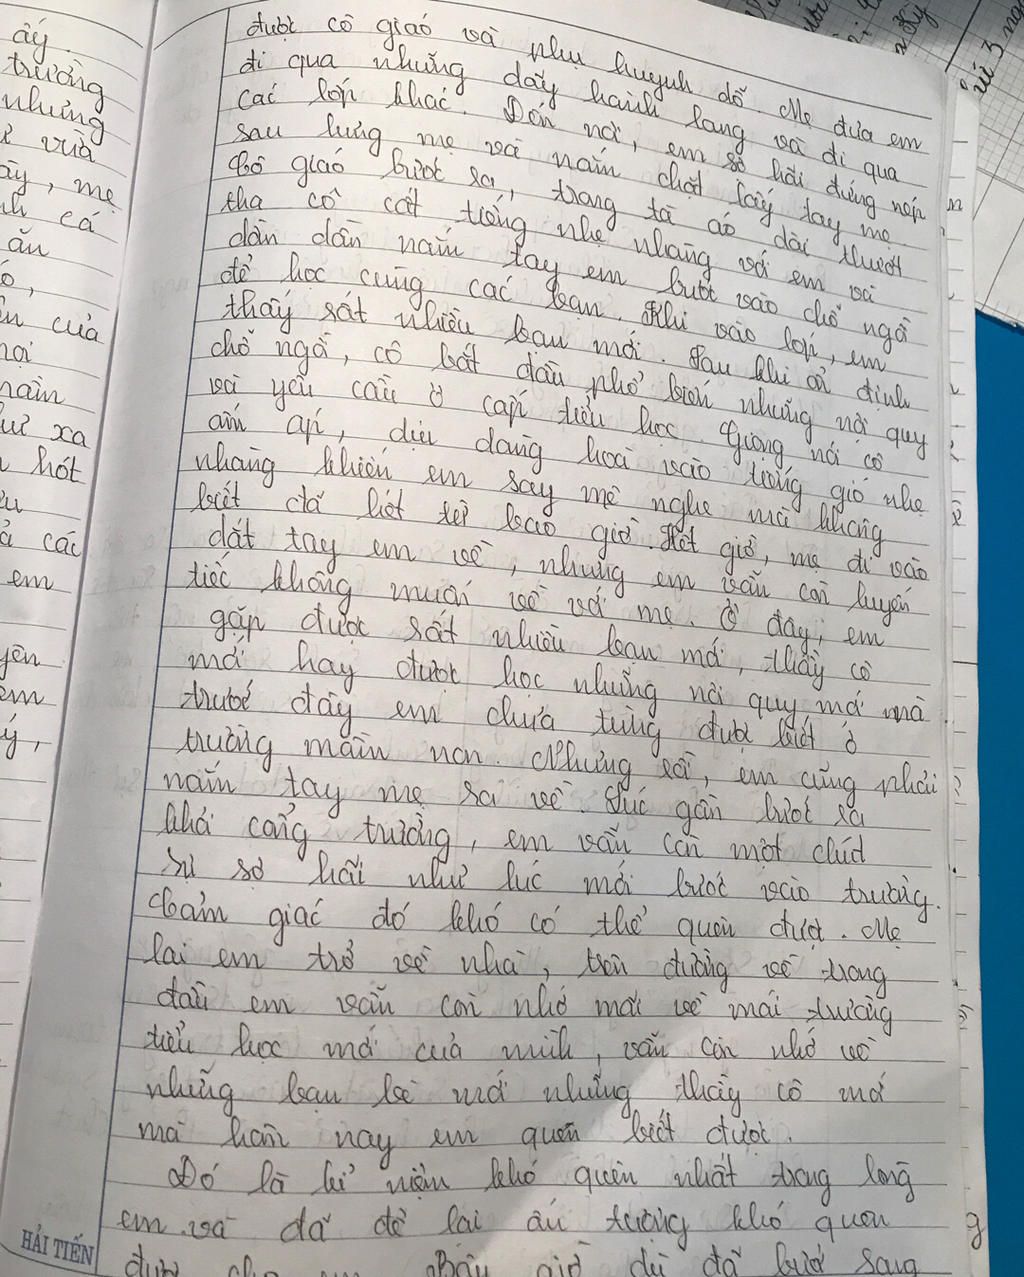 ấy.
trường
những
vừa
ấy, mẹ
cá
ăn
của
xa
hót
cả các
em
được cô giáo và phụ huynh dỗ. Mẹ đưa em
đi qua những dãy hành lang và đi qua
các lớp khác. Đến nơi, em sợ hãi đứng nép
sau lưng mẹ và nắm chặt lấy tay mẹ.
Cô giáo bước ra, trong tà áo dài thướt
tha cô cất tiếng nhẹ nhàng với em và
dần dần nắm tay em bước vào chỗ ngồi
để học cùng các bạn. Khi vào lớp, em
thấy rất nhiều bạn mới. Sau khi ổn định
chỗ ngồi, cô bắt đầu phổ biến những nội quy
và yêu cầu ở cấp tiểu học. Giọng nói cô
ấm áp, dịu dàng hoà vào tiếng gió nhẹ
nhàng khiến em say mê nghe mà không
biết đã hết từ bao giờ. Hết giờ, mẹ đi vào
dắt tay em về, nhưng em vẫn còn luyến
tiếc không muốn về với mẹ. Ở đây, em
gặp được rất nhiều bạn mới, thầy cô
mới hay được học những nội quy mới mà
trước đây em chưa từng được biết ở
trường mầm non. Nhưng rồi, em cũng phải
nắm tay mẹ ra về. Lúc gần bước ra
khỏi cổng trường, em vẫn còn một chút
sự sợ hãi như lúc mới bước vào trường.
Cảm giác đó khó có thể quên được. Mẹ
lai em trở về nhà, trên đường về trong
đầu em vẫn còn nhớ mãi về mái trường
tiểu học mới của mình, vẫn còn nhớ về
những bạn bè mới những thầy cô mới
mà hôm nay em quen biết được.
Đó là kỉ niệm khó quên nhất trong lòng
em và đã để lại ấn tượng khó quên
được cho em. Bây giờ dù đã bước sang
HẢI TIẾN